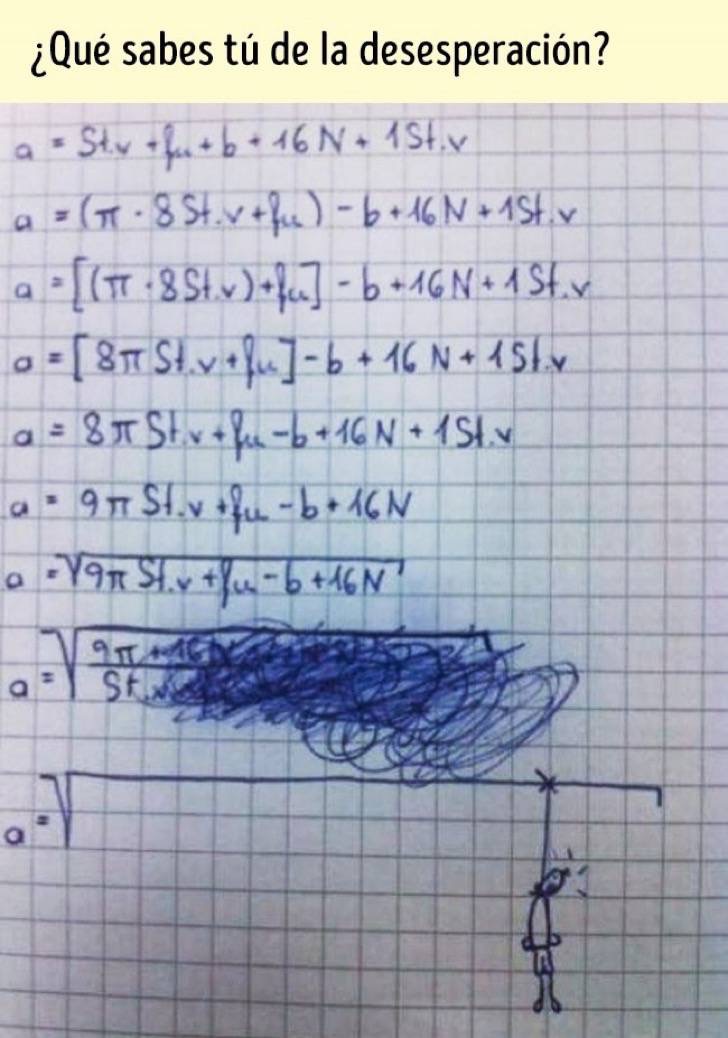 ¿Qué sabes tú de la desesperación?
a = St.v + fu + b + 16 N + 1 St.v
a = (π · 8 St.v + fu) - b + 16 N + 1 St.v
a = [(π · 8 St.v) + fu] - b + 16 N + 1 St.v
a = [8π St.v + fu] - b + 16 N + 1 St.v
a = 8π St.v + fu - b + 16 N + 1 St.v
a = 9π St.v + fu - b + 16 N
a = √9π St.v + fu - b + 16 N
a = √ 9π + 16
St.
a = √